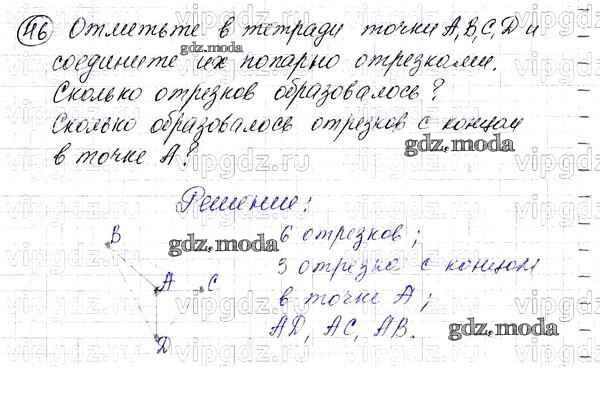 46 Отметьте в тетради точки A, B, C, D и
соедините их попарно отрезками.
Сколько отрезков образовалось?
Сколько образовалось отрезков с концом
в точке A?
Решение:
6 отрезков;
3 отрезка с концом
в точке A;
AD, AC, AB.
B
A
C
D
gdz.moda
gdz.moda
gdz.moda
gdz.moda
vipgdz.ru